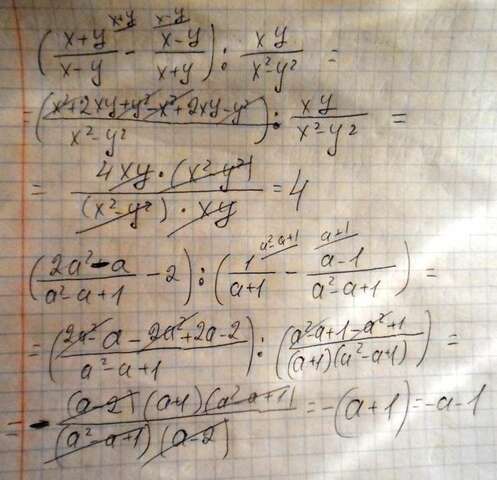 x+y x-y
(x+y/x-y - x-y/x+y) : xy/x²-y² =
= (x²+2xy+y²-x²+2xy-y²/x²-y²) : xy/x²-y² =
= 4xy·(x²-y²)/(x²-y²)·xy = 4
a²-a+1 a+1
(2a²-a/a²-a+1 - 2) : (1/a+1 - a-1/a²-a+1) =
= (2a²-a-2a²+2a-2/a²-a+1) : (a²-a+1-a²+1/(a+1)(a²-a+1)) =
= -(a-2)(a+1)(a²-a+1)/(a²-a+1)(a-2) = -(a+1) = -a-1